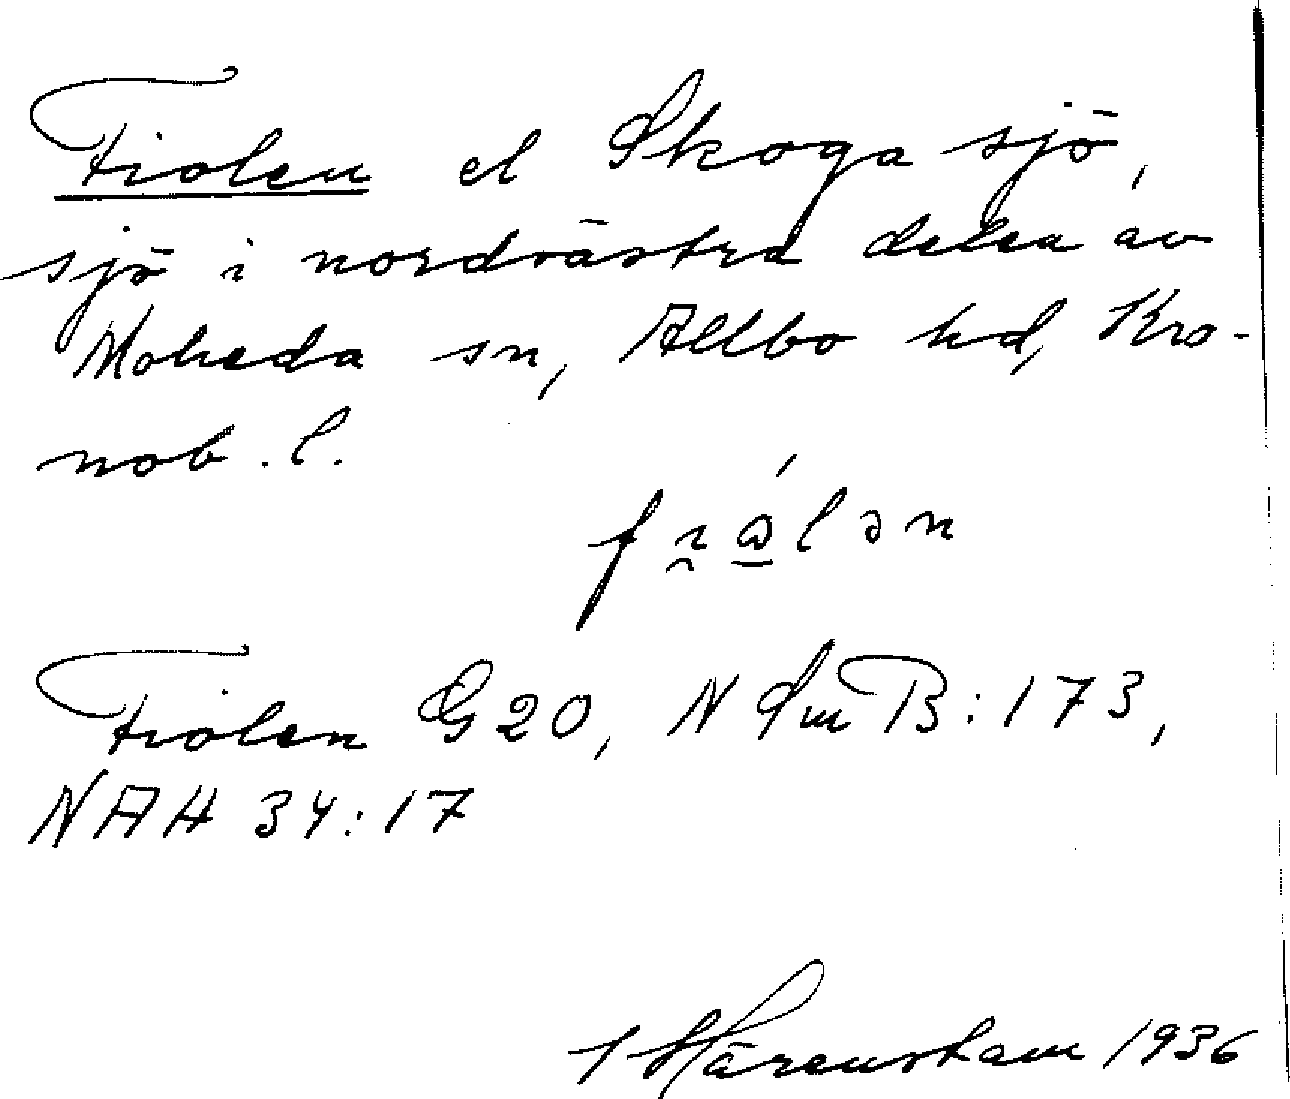 Fiolen el Skoga sjö,
sjö i nordvästra delen av
Moheda sn, Allbo hd, Kro-
nob. l.
Fiolen G20, N Sm B: 173,
NAH 34:17
Härenstam 1936